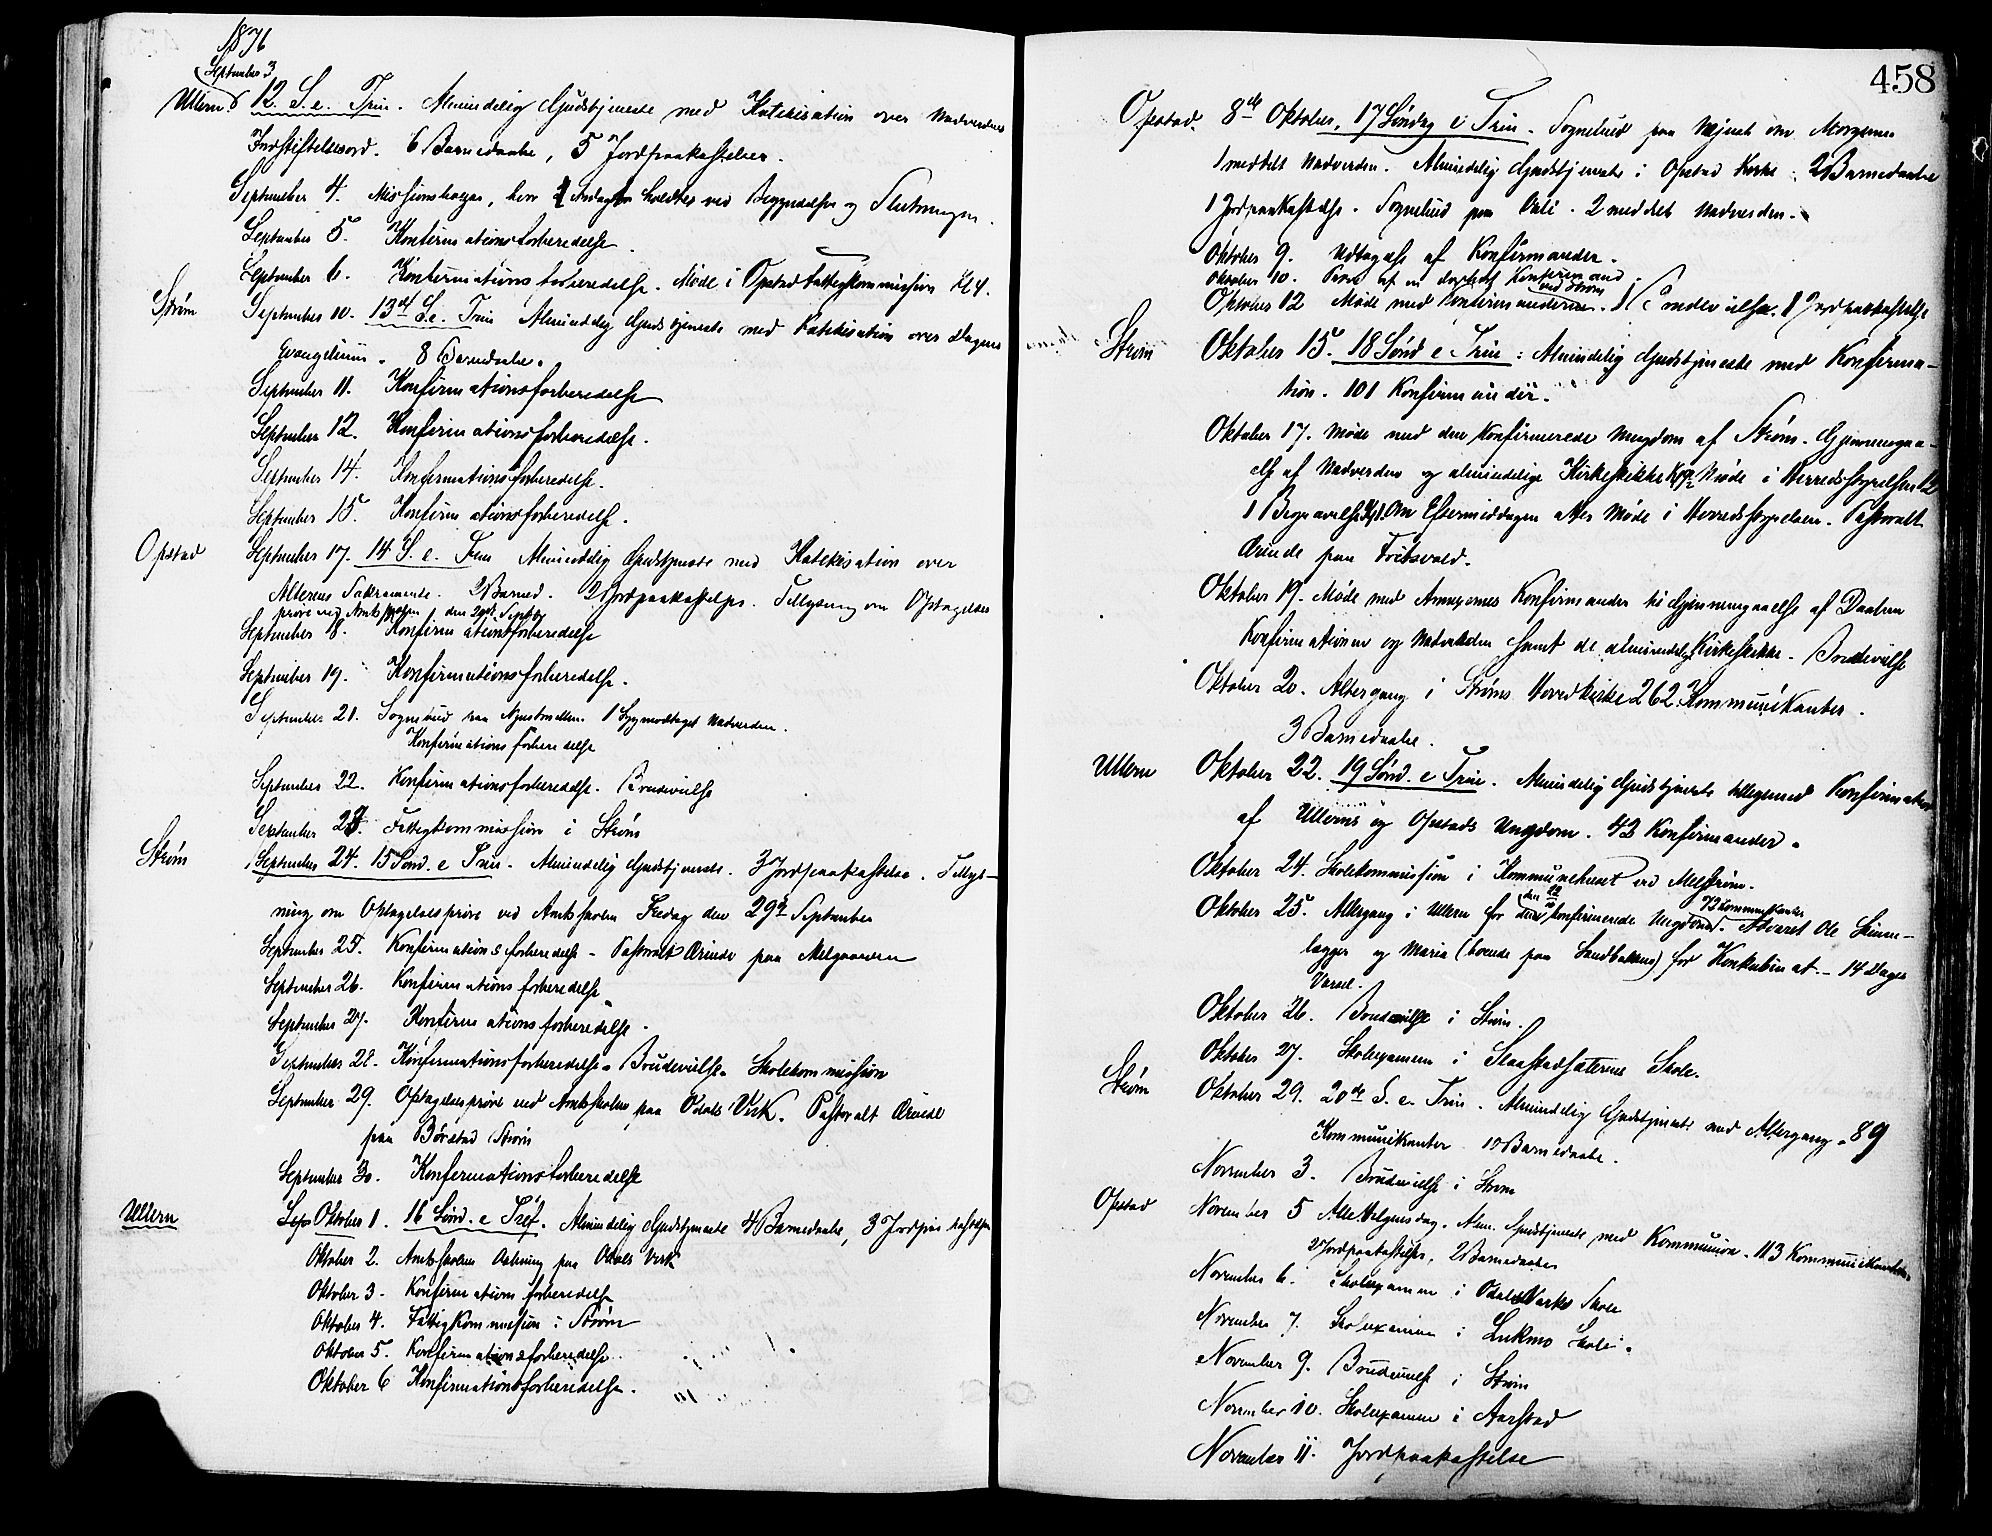 1876
September 3
Ullern 12. S. e. Trin. Almindelig Gudstjeneste med Katekisation over Nadverdens
Indstiftelsesord. 6 Barnedaabe, 5 Jordpaakastelser.
September 4. Missionsbazar, hvor Andagt holdtes ved Begyndelsen og Slutningen.
September 5. Konfirmationsforberedelse.
September 6. Konfirmationsforberedelse. Møde i Opstad Fattigkommission Kl 4.
Strøm September 10. 13de S. e. Trin Almindelig Gudstjeneste med Katekisation over Dagens
Evangelium. 8 Barnedaabe.
September 11. Konfirmationsforberedelse
September 12. Konfirmationsforberedelse.
September 14. Konfirmationsforberedelse.
September 15. Konfirmationsforberedelse.
Opstad September 17. 14 S. e. Trin Almindelig Gudstjeneste med Katekisation over
Alterens Sakramente. 2 Barned. 2 Jordpaakastelser. Tillysning om Optagelses
prøve ved Amtsskolen den 29de Septbr
September 18. Konfirmationsforberedelse
September 19. Konfirmationsforberedelse.
September 21. Sognebud paa 1 Syg modtaget Nadverden.
Konfirmationsforberedelse
September 22. Konfirmationsforberedelse. Brudevielse
September 23. Fattigkommission i Strøm
Strøm September 24. 15 Sønd. e Trin. Almindelig Gudstjeneste. 3 Jordpaakastelse. Tillys-
ning om Optagelsesprøve ved Amtsskolen Fredag den 29de September
September 25. Konfirmationsforberedelse - Pastoralt Ærinde paa Melgaarden
September 26. Konfirmationsforberedelse
September 27. Konfirmationsforberedelse.
September 28. Konfirmationsforberedelse. Brudevielse. Skolekommission
September 29. Optagelsesprøve ved Amtsskolen paa Odals Værk. Pastoralt Ærinde
paa Børstad Strøm
September 30. Konfirmationsforberedelse
Ullern Oktober 1. 16 Sønd. e Tref. Almindelig Gudstjeneste 4 Barnedaabe, 3 Jordpaakastelse
Oktober 2. Amtsskolens Aabning paa Odals Værk
Oktober 3. Konfirmationsforberedelse
Oktober 4. Fattigkommission i Strøm
Oktober 5. Konfirmationsforberedelse.
Oktober 6 Konfirmationsforberedelse.
458
Opstad. 8de Oktober, 17 Søndag e Trin. Sognebud paa om Morgenen
1 meddelt Nadverden. Almindelig Gudstjeneste i Opstad Kirke. 2 Barnedaabe
1 Jordpaakastelse. Sognebud paa 2 meddelt Nadverden.
Oktober 9. Udtagelse af Konfirmander.
Oktober 10. Prøve af en Konfirmand.
Oktober 12 Møde med Konfirmanderne ved Strøm. 1 Brudevielse. 1 Jordpaakastelse
Strøm Oktober 15. 18 Sønd e Trin: Almindelig Gudstjeneste med Konfirma-
tion. 101 Konfirmander.
Oktober 17. Møde med den Konfirmerede Ungdom af Strøm. Gjennemgaa-
else af Nadverden og almindelige Kirkeskikke Møde i Herredsstyrelsen 12
1 Begravelse. Om Eftermiddagen atter Møde i Herredsstyrelsen. Pastoralt
Ærinde paa Fritsvold.
Oktober 19. Møde med Annexernes Konfirmander til Gjennemgaaelse af Daaben
Konfirmationen og Nadverden samt de almindelige Kirkeskikke. Brudevielse
Oktober 20. Altergang i Strøms Hovedkirke 262 Kommunikanter.
3 Barnedaabe.
Ullern Oktober 22. 19 Sønd. e Trin. Almindelig Gudstjeneste tilligemed Konfirmation
af Ullerns og Opstads Ungdom. 42 Konfirmander.
Oktober 24. Skolekommission i Kommunehuset ved Melstrøm.
Oktober 25. Altergang i Ullern for den konfirmerede Ungdom. 72 Kommunikanter Advaret Ole
og Maria (boende paa Sandbakken) for Konkubinat - 14 Dages
Varsel.
Oktober 26. Brudevielse i Strøm.
Oktober 27. Skoleexamen i Slaastadsæterens Skole.
Strøm Oktober 29. 20de S. e. Trin. Almindelig Gudstjeneste med Altergang. 89
Kommunikanter 10 Barnedaabe.
November 3. Brudevielse i Strøm
Opstad November 5 Alle Helgensdag. Alm. Gudstjeneste med Kommunion. 113 Kommunikanter
2 Jordpaakastelser, 2 Barnedaabe
November 6. Skoleexamen i Odals Værks Skole
November 7. Skoleexamen i Lukmo Skole.
November 9. Brudevielse i Strøm
November 10. Skoleexamen i Aarstad
November 11. Jordpaakastelse